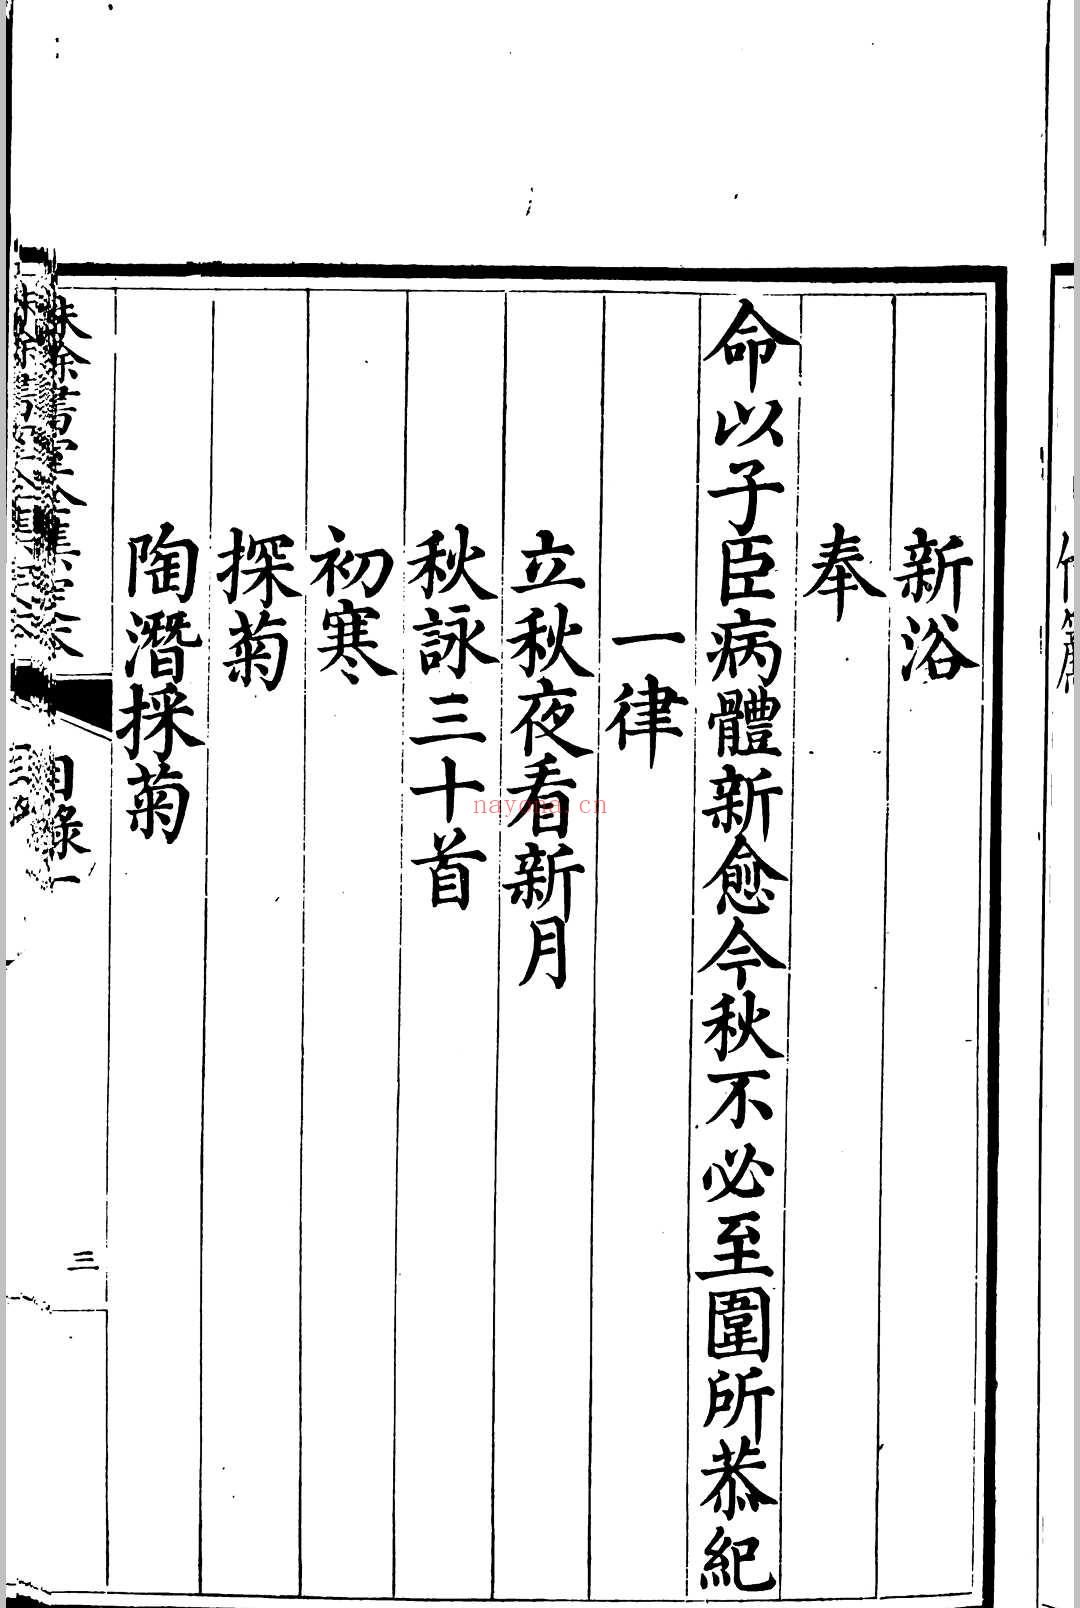 新浴
奉
命以子臣病體新愈今秋不必至圍所恭紀
一律
立秋夜看新月
秋詠三十首
初寒
探菊
陶潛採菊
目錄一
三
nayona.cn